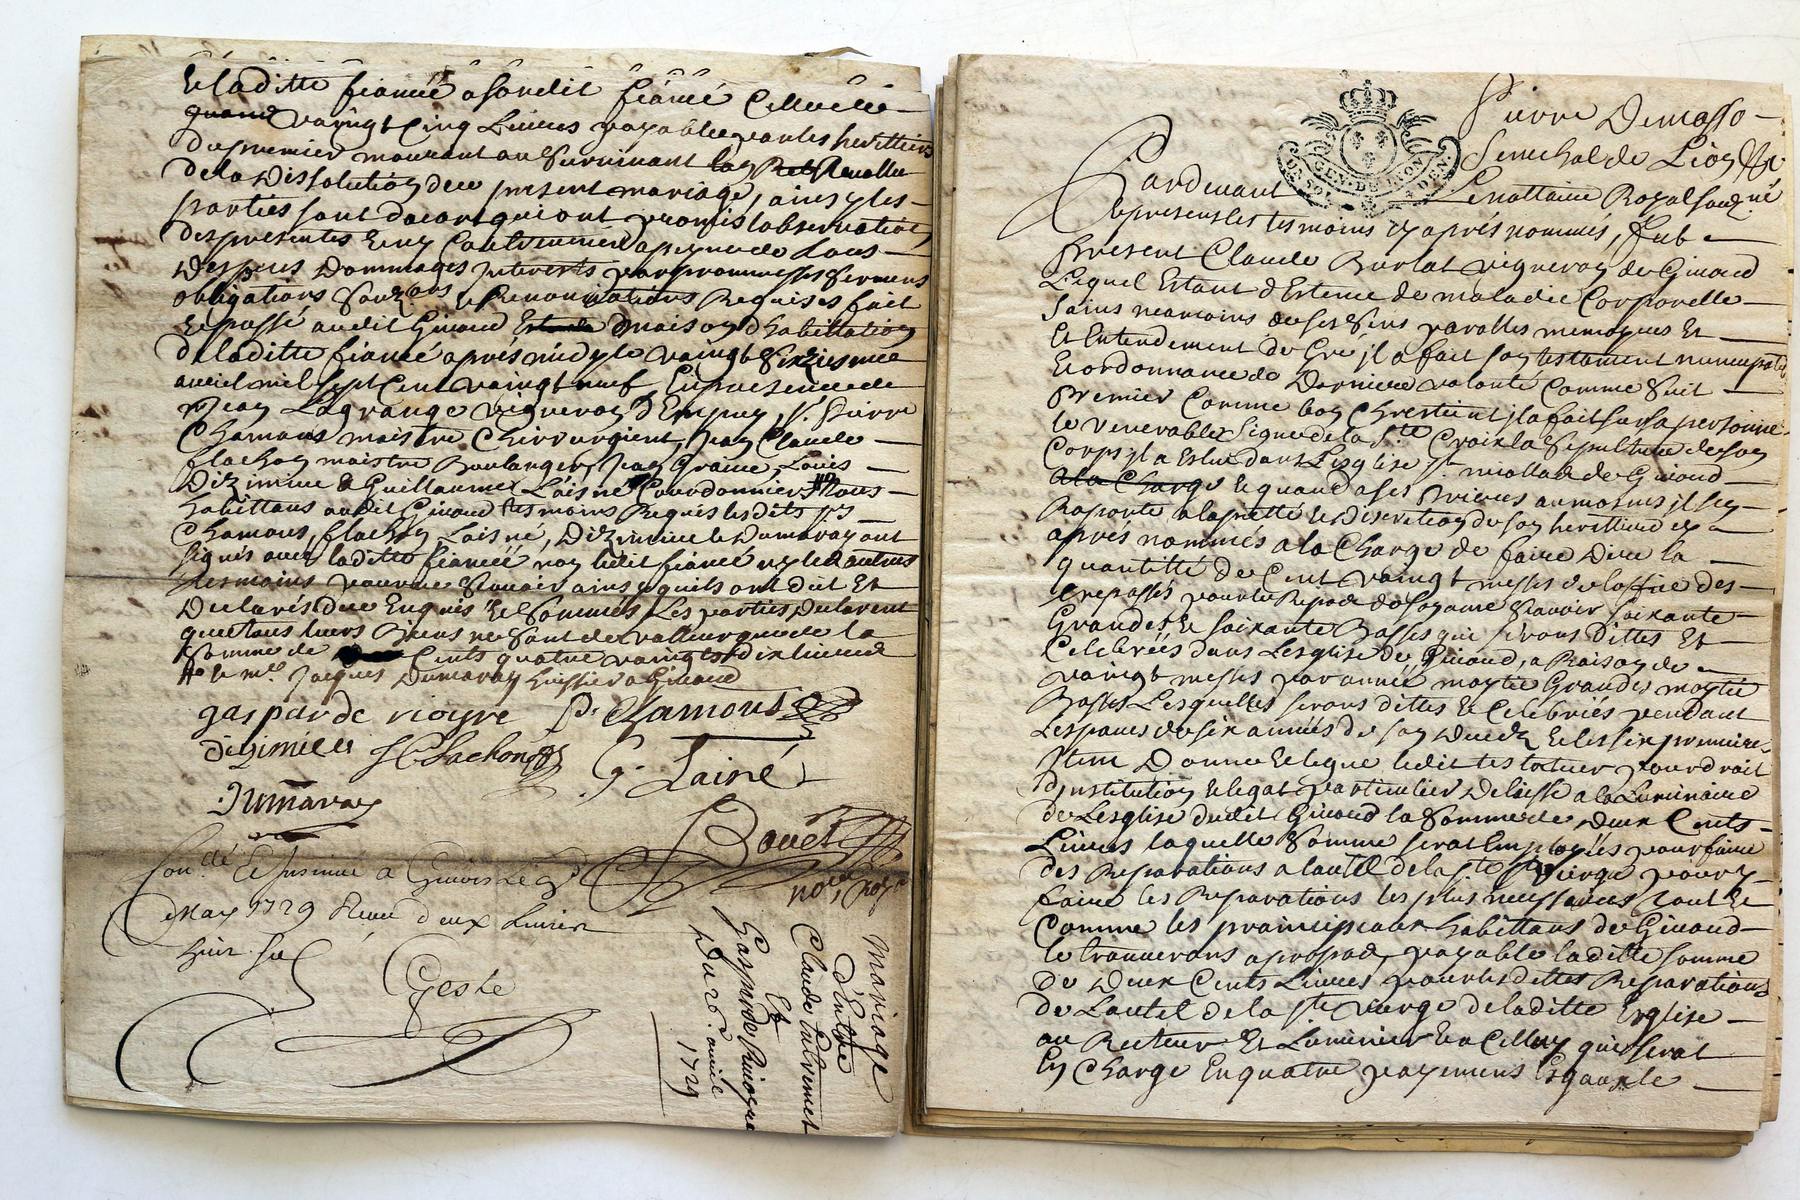 Et laditte fiancée a sondit fiancé Celle de
quarante vaingt Cinq Livres payable par les herittiers
du premier mourant au survivant
de la Dissolution de ce present mariage, ainsy les
parties sont dacort qui ont promis lobservation
des presentes
despens Dommages interests par promesses serments
obligations et Renonciations Requises fait
et passé audit Givord maison dhabittation
de laditte fiancée aprés midy le vaingt sixiesme
avril mil sept Cent vaingt neuf En presence de
Jean Lagrange vigneron Sr. Pierre
Chamous maistre Chirurgient, Jean Claude
flachon maistre Boulanger, Jean Graine, Louis
Dizimieu & Guillaume Laisné Courdonniers tous
habittans audit Givord tesmoins Requis lesdits srs
Chamous, flachon, Laisné, Dizimieu et Dumaray ont
signés avec laditte fiancée non ledit fiancé ny les autres
tesmoins pour ne sçavoir ainsy quils ont dit Et
Declarés de ce Enquis et sommés Les parties Declarent
que tous leurs Biens ne sont de valleur que de la
somme de Cents quatre vaingts dix livres
et me. Jacques Dumaray huissier a Givord
gasparde rioyre P. Chamous
dizimieu JC flachon G. Lainé
Dumaray
Bouët
no.re Royal
Con.lé Et Insinué a Givors Le
May 1729 Reçu deux Livres
huit sols
Geste
Mariage
d'Entre
Claude
Et
Gasparde
Du 26. avril
1729
Pierre Demasso
Senechal de Lion &c
GEN. DE LYON
Pardevant Le nottaire Royal soubz.né
Et presents les tesmoins cy aprés nommés, fut
Present Claude Burlat vigneron de Givord
Lequel Estant detenu de maladie Corporelle
sains neamoins de ses sens parolles memoyres Et
Et Entendement de Gré il a fait son testament nuncupatif
Et ordonnance de Derniere volonté Comme suit
Premier Comme bon Chrestient il a fait sur sa personne
le venerable signe de la Ste Croix la sepulture de son
Corps il a Eslu dans Lesglise St. nicollas de Givord
a la Charge Et quand a ses Prieres aumosnes il sen
Raporte a la pietté et Discretion de son herittiere cy
aprés nommés a la Charge de faire Dire la
quantitté de Cent vaingt messes de loffice des
trepassés pour le Repos de son ame sçavoir soixante
Grandes Et soixante Basses qui seront Dittes Et
Celebrées dans Lesglise de Givord, a Raison de
vaingt messes par année moytié Grandes moytié
Basses Lesquelles seront dittes Et Celebrées pendant
Lespaces de six années de son Decedz
Item Donne et legue ledit testateur pour droit
dinstitution et legat particulier delaisse a la Luminaire
de Lesglise dudit Givord la somme de Deux Cents
Livres laquelle somme serat Employés pour faire
des Reparations a lautel de la ste Vierge pour y
faire les Reparations les plus necessaires tout Et
Comme les principeaux habittans de Givord
le trouverons apropos, payable laditte somme
De Deux Cents Livres pour lesdittes Reparations
de Lautel de la ste vierge de laditte Esglise
au Recteur Et Luminier En Celluy qui serat
En Charge En quatre payements Esgaux le